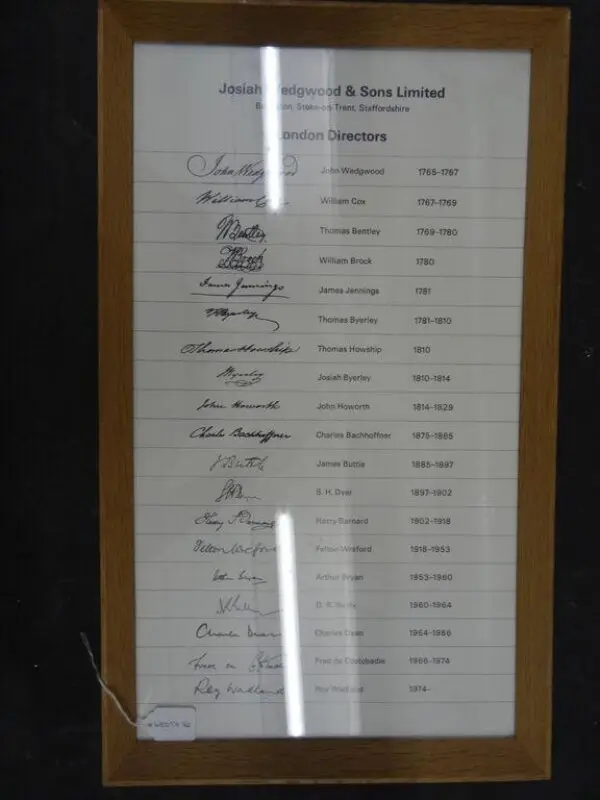 Josiah Wedgwood & Sons Limited
Stoke-on-Trent, Staffordshire
London Directors
John Wedgwood John Wedgwood 1765-1767
William Cox William Cox 1767-1769
Thomas Bentley 1769-1780
William Brock 1780
James Jennings James Jennings 1781
Thomas Byerley 1781-1810
Thomas Howship Thomas Howship 1810
Josiah Byerley 1810-1814
John Howorth John Howorth 1814-1829
Charles Bachhoffner Charles Bachhoffner 1875-1885
James Buttle 1885-1897
S. H. Dyer 1897-1902
Harry Barnard 1902-1918
Felton Wreford Felton Wreford 1918-1953
Arthur Bryan 1953-1960
1960-1964
Charles Charles 1964-1966
Fred de Costobadie 1966-1974
Reg Reg 1974-